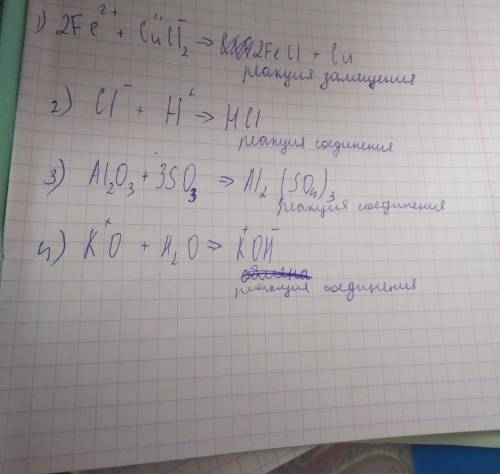 1) 2Fe²⁺ + CuCl₂⁻ => 2FeCl + Cu
реакция замещения
2) Cl⁻ + H⁺ => HCl
реакция соединения
3) Al₂O₃ + 3SO₃ => Al₂(SO₄)₃
реакция соединения
4) K⁺O + H₂O => K⁺OH⁻
обмена
реакция соединения